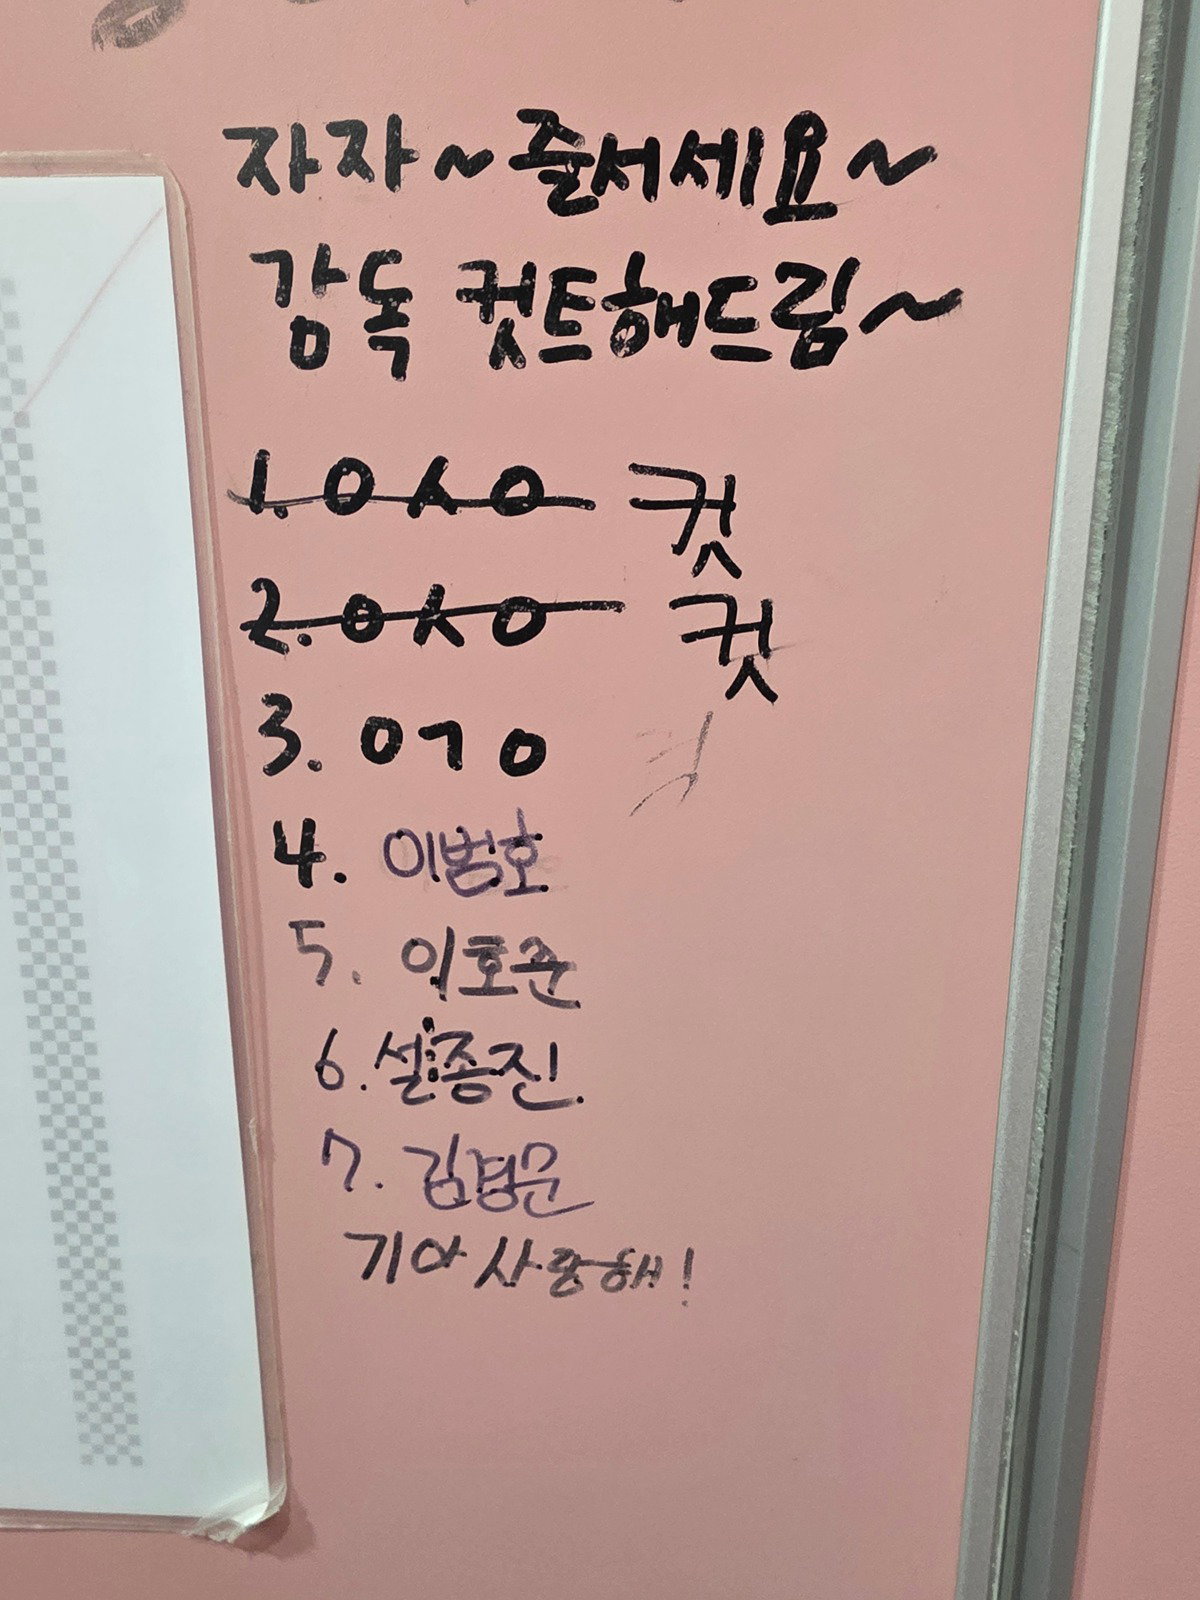 자자~ 줄서세요~
감독 컷트해드림~
1. ㅇㅅㅇ 컷
2. ㅇㅅㅇ 컷
3. ㅇㄱㅇ
4. 이범호
5. 이호준
6. 설종진
7. 김경문
기아 사랑해!